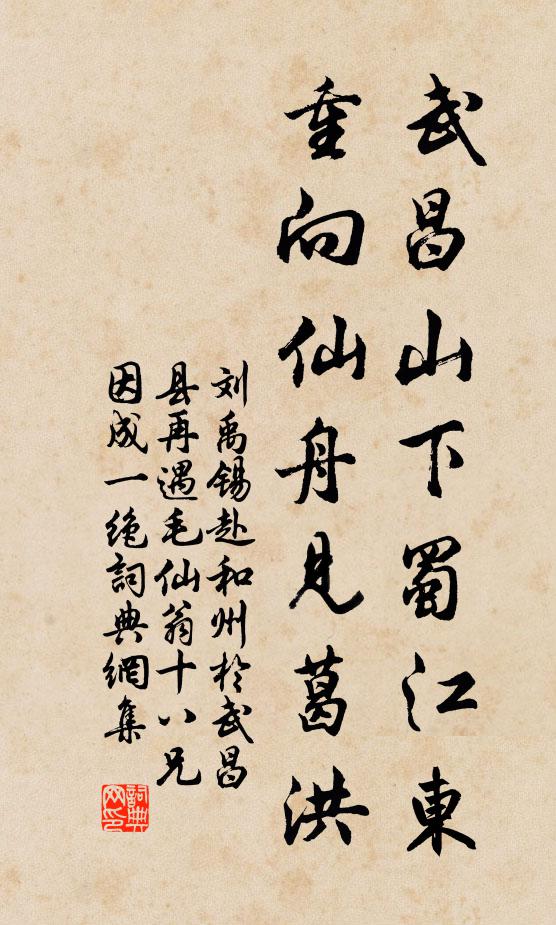 武昌山下蜀江東
重向仙舟見葛洪
刘禹锡赴和州於武昌
县再遇毛仙翁十八兄
因成一绝詞典網集
詞典网印